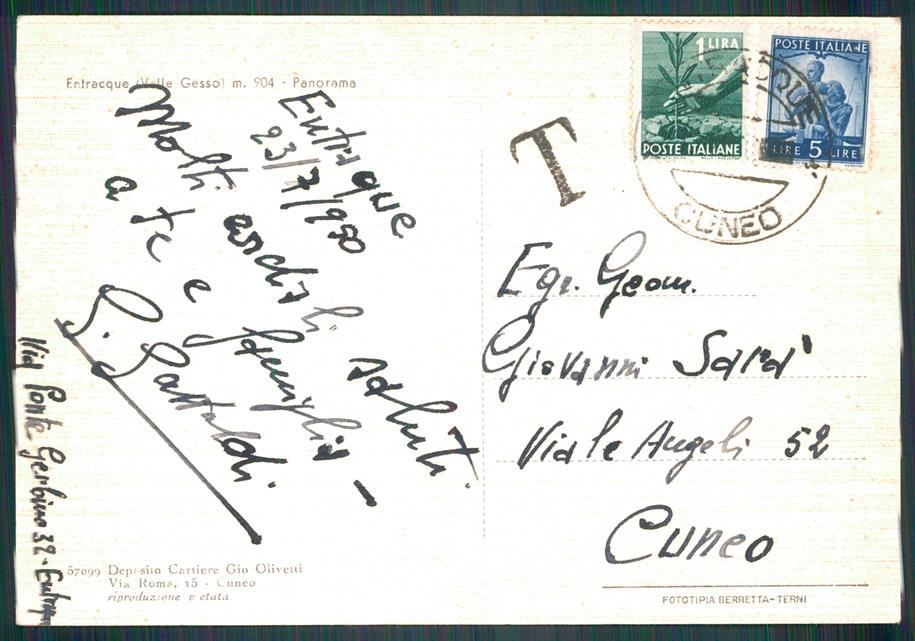 Entracque (Valle Gesso) m. 904 - Panorama
Entraque
23/7/950
Molti cordiali saluti
a te e famiglia -
G. Gastaldi.
Via Ponte Gerbino 32 - Entraq
57099 Deposito Cartiere Gio Olivetti
Via Roma, 15 - Cuneo
riproduzione vietata
1 LIRA
POSTE ITALIANE
POSTE ITALIANE
LIRE 5 LIRE
CUNEO
T
Egr. Geom.
Giovanni
Viale Angeli 52
Cuneo
FOTOTIPIA BERRETTA - TERNI